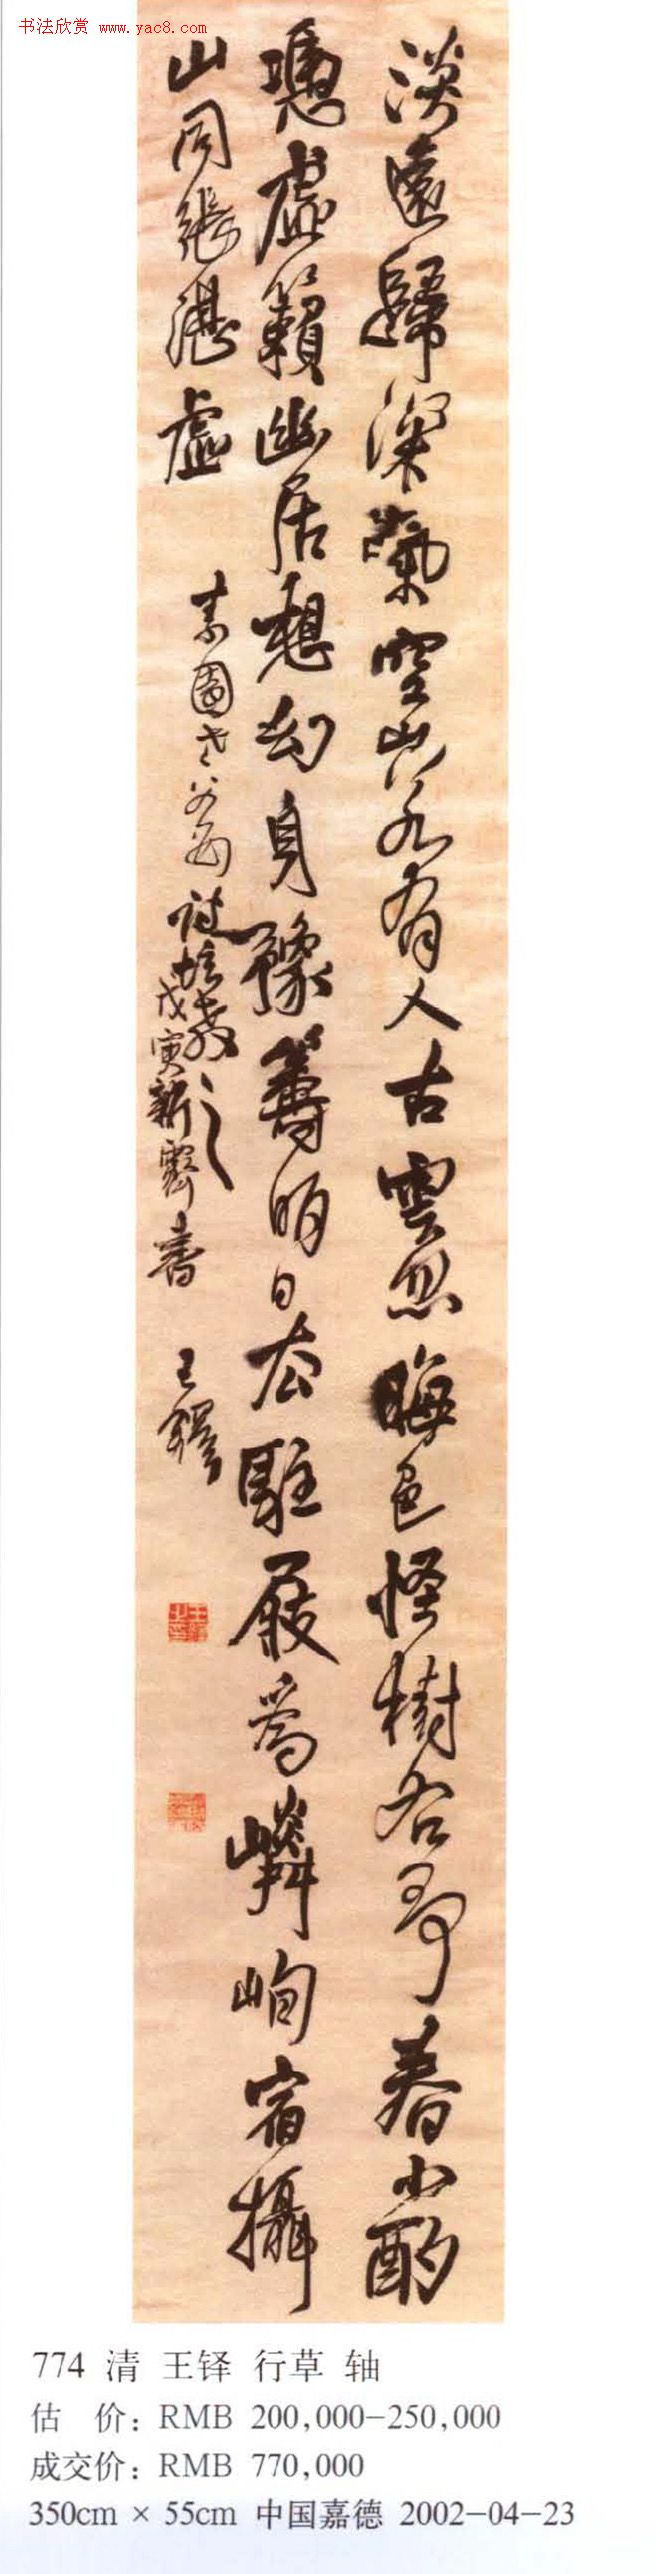 书法欣赏 www.yac8.com
淡遠歸深氣空山若有人古雲忽晦色怪樹各爭春小酌
憑虛籟幽居想幻身豫籌明日去駐屐為嶙峋宿攝
山同張湛虛
素園老父母詞壇教之
戊寅新霽書 王鐸
774 清 王铎 行草 轴
估 价: RMB 200,000-250,000
成交价: RMB 770,000
350cm × 55cm 中国嘉德 2002-04-23